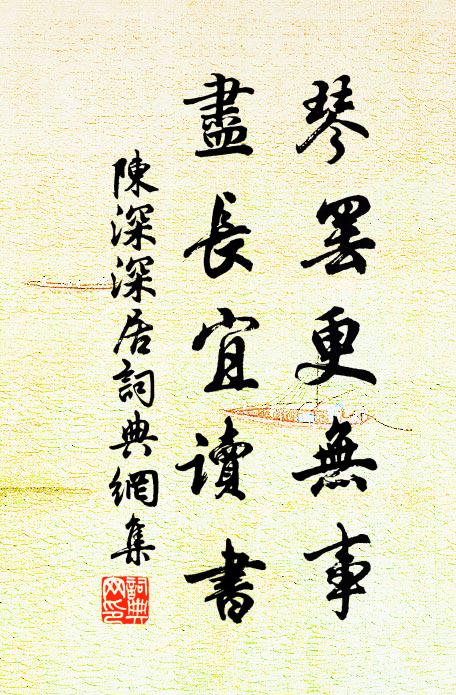 琴罷更無事
盡長宜讀書
陳深深居詞典網集
詞典
网印